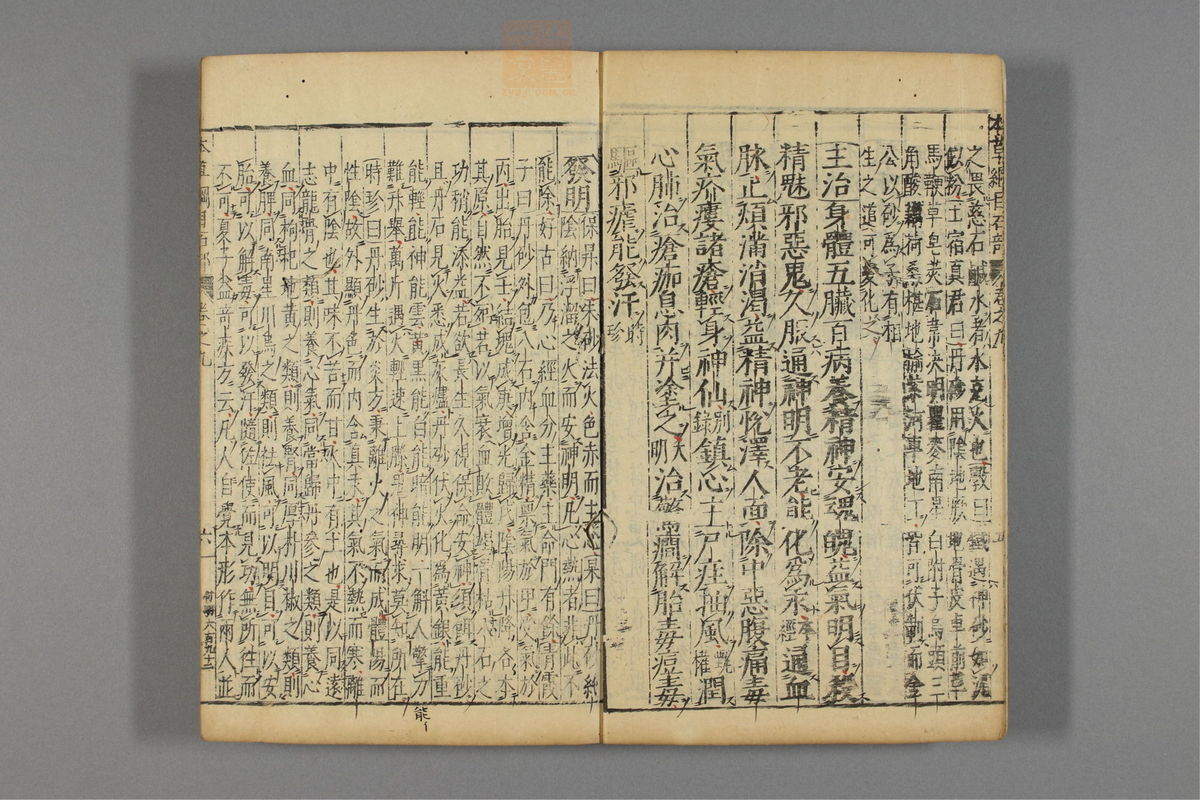 之畏慈石鹹水者水克火也斆曰鐵遇神砂如泥
似粉土宿真君曰丹砂用陰地厥地骨皮車前草
馬鞭草皂莢石韋決明瞿麥南星白附子烏頭三
角酸藕荷桑椹地榆紫河車地丁皆可伏制而金
公以砂為子有相
生之道可變化之
主治身體五臟百病養精神安魂魄益氣明目殺
精魅邪惡鬼久服通神明不老能化為汞經通血
脉止煩滿消渴益精神悅澤人面除中惡腹痛毒
氣疥瘻諸瘡輕身神仙別錄鎮心主尸疰抽風甄權潤
心肺治瘡痂息肉并塗之大明治驚癇解胎毒痘毒
驅邪瘧能發汗時珍
發明保昇曰朱砂法火色赤而主心杲曰丹砂純
陰納浮溜之火而安神明凡心熱者非此不
能除好古曰乃心經血分主藥主命門有餘青霞
子曰丹砂外包八石內含金精稟氣於甲受氣於
丙出胎見壬結塊成庚增光歸戊陰陽升降各本
其原自然不死若以氣衰血敗體竭骨枯八石之
功稍能添益若欲長生久視保命安神須餌丹砂
且八石見火悉成灰燼丹砂伏火化為黃銀能重
能輕能神能靈能黃能黑能白能暗能明一解人擎力
難升舉萬斤遇火輕速上騰鬼神尋求莫知所在
時珍曰丹砂生於炎方稟離火之氣而成體陽而
性陰故外顯丹色而內含真汞其氣不熱而寒離
中有陰也其味不苦而甘火中有土也是以同遠
志龍骨之類則養心氣同當歸丹參之類則養心
血同枸杞地黃之類則養腎同厚朴川椒之類則
養脾同南星川烏之類則祛風可以明目可以安
胎可以解毒可以發汗隨佐使而見功無所往而
不可夏子益奇疾方云凡人自覺本形作兩人並
本草綱目石部 卷之九
六
能